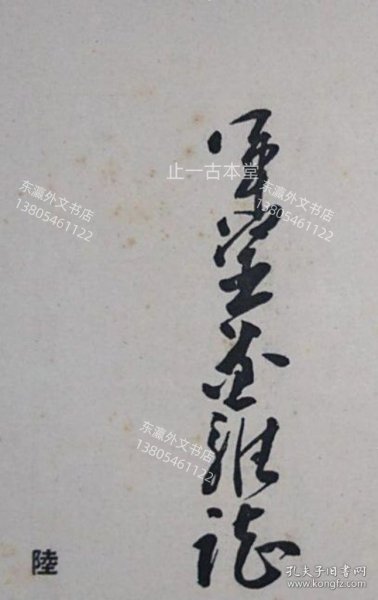 雜誌
陸
止一古本堂
东瀛外文书店
13805461122
东瀛外文书店
13805461122
东瀛外文书店
13805461122
孔夫子旧书网
www.kongfz.com